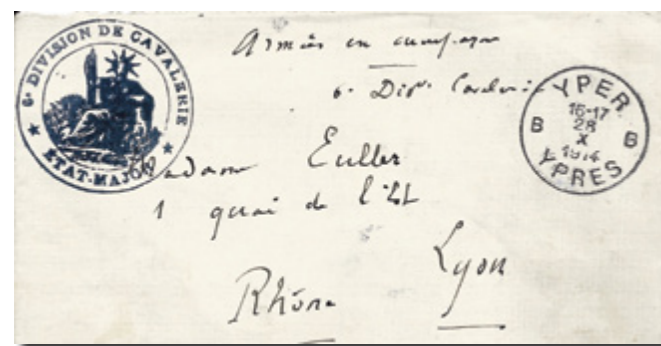 6e DIVISION DE CAVALERIE
ETAT-MAJOR
Armées en campagne
6e Divon Cavalerie
YPER
15-17
28
X
1914
B B
YPRES
Madame Euller
1 quai de l'Est
Lyon
Rhône